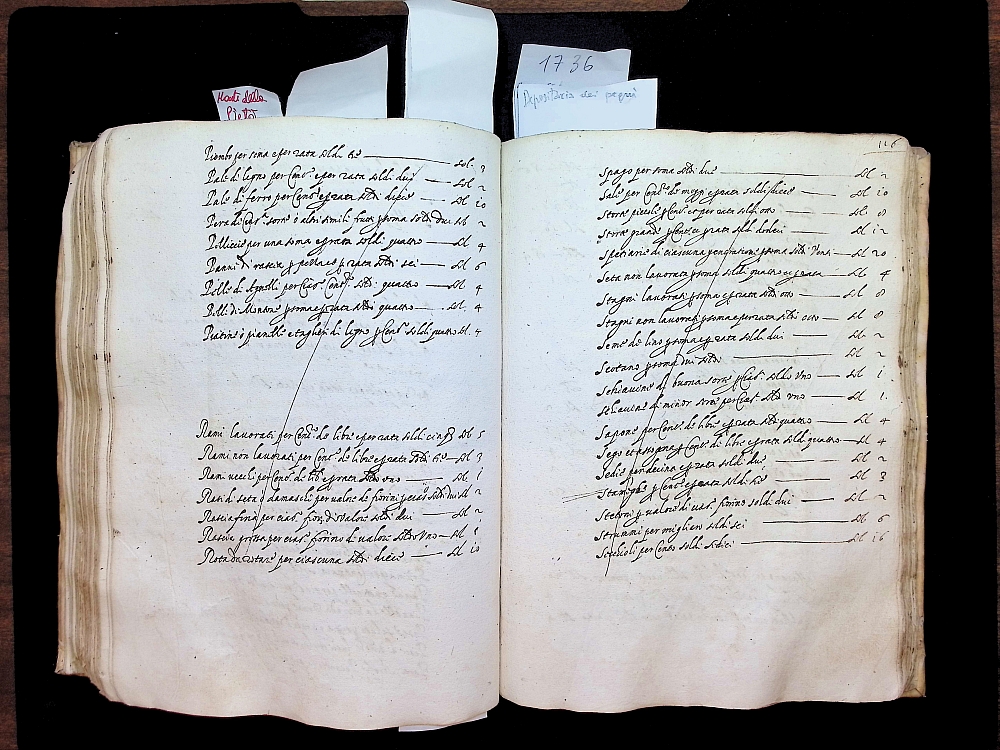 Monte della
Pietà
1736
Depositaria dei pegni
Piombo per soma e per rata soldi tre sol. 3
Pale di legno per Cent.º e per rata soldi dui Sol 2
Pale di ferro per Cent.º e p rata soldi dieci Sol 10
Pera di soma o altri simili frutti p soma soldi dui sol 2
Pelliccie per una soma e p rata soldi quattro Sol 4
Panni di rascia p pezza e p rata soldi sei Sol 6
Pelle di Agnelli per Cent.º soldi quattro Sol 4
Pelli di Montone p soma e p rata soldi quattro Sol 4
Piatine o pianelli e taglieri di legno p Cent.º soldi quattro sol. 4
Rami lavorati per Cent.º de libre e per rata soldi cinq Sol 5
Rami non lavorati per Cent.º de libre e p rata soldi tre Sol 3
Rami vecchi per Cent.º de lib e p rata soldi uno Sol 1
Rasi di seta damaschi per valore de fiorini soldi dui sol 2
Rascia fina per fiorino valore soldi dui Sol 2
Rascia grossa per fiorino di valore soldo uno Sol 1
Rota da rotare per ciascuna soldi dieci Sol 10
116
Spago per soma soldi dui Sol 2
Sale per Cent.º de e p rata soldi dieci Sol 10
Store piccole p Cent.º et per rata soldi otto Sol 8
Store grande p Cent.º e p rata soldi dodeci Sol 12
Speciarie di ciascuna p soma soldi venti Sol 20
Seta non lavorata p soma soldi quattro e p rata Sol 4
Stagni lavorati p soma e p rata soldi otto Sol 8
Stagni non lavorati p soma e per rata soldi otto Sol 8
Seme de lino p soma e p rata soldi dui Sol 2
Scotano p soma dui soldi Sol 2
Schiavine di buona sorte soldo uno Sol 1
Schiavine di minor sorte per soldo uno Sol 1.
Sapone per Cent.º de libre e p rata soldi quattro Sol 4
Sego p Cent.º de libre e p rata soldi quattro Sol 4
Sedie per decino e p rata soldi dui Sol 2
p Cent.º e p rata soldi tre Sol 3
p valore di fiorino soldi dui Sol 2
Strummi per migliaro soldi sei Sol 6
per Cento soldi sedici Sol 16